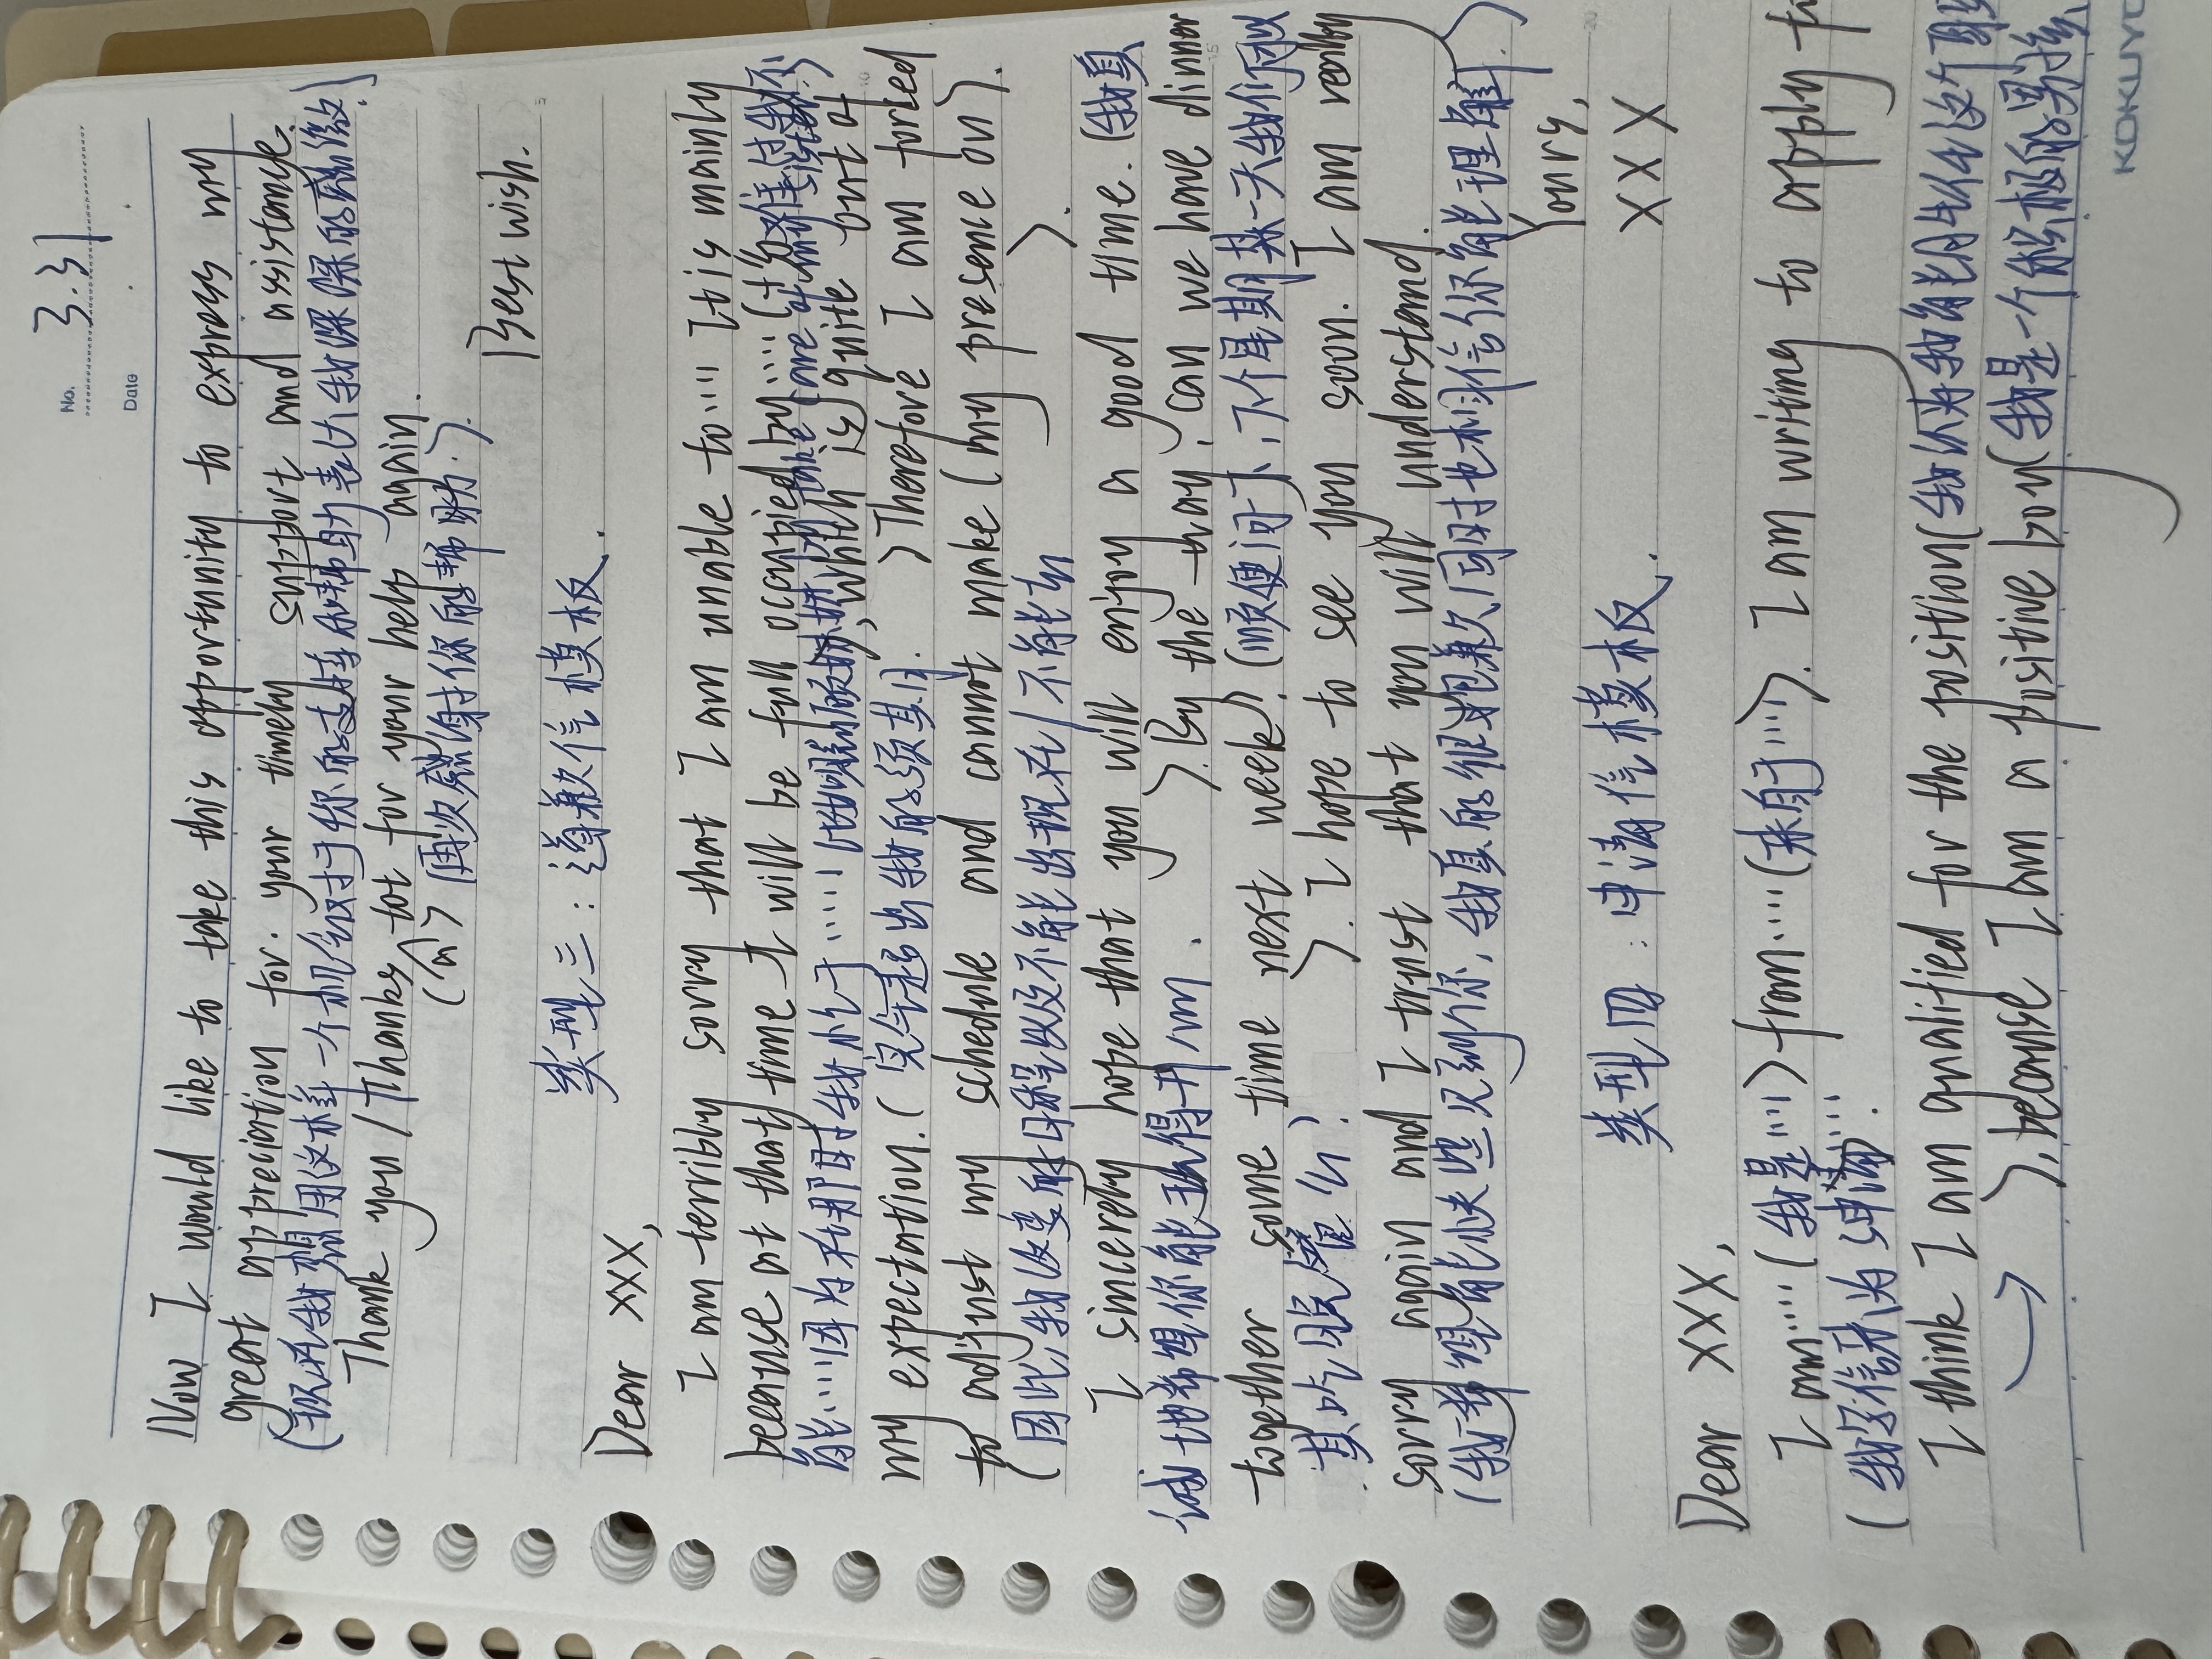 No. 3.31
Date
Now I would like to take this opportunity to express my
great appreciation for. your timely support and assistance.
(现在我想用这样一个机会对于你的支持和帮助表达我深深的感激.)
Thank you / Thanks tot for your help again.
(么) (再次感谢你的帮助.).
Best wish.
类型三: 道歉信模板.
Dear XXX,
I am terribly sorry that I am unable to…… It is mainly
because at that time I will be full occupied by……(十分难过我不
能……因为在那时我忙于……), which is quite out of
my expectation. (完全超出我的预期. >Therefore I am foried
to adjust my schedule and cannot make (my presene on).
(因此,我改变的日程以及不能出现在/不能去 >.
I sincerely hope that you will enjoy a good time. (我真
诚地希望你能玩得开心. >. By the thay, can we have dinner
together some time next week? (顺便问下,下个星期某一天我们可以
共吃晚餐么? >. I hope to see you soon. I am really
sorry again and I trust that you will understand.
(我希望能快些见到你,我真的很抱歉同时也相信你能理解.)
Yours,
XXX
类型四: 申请信模板.
Dear XXX,
I am……(我是……) from……(来自……>. I am writing to apply
(我写信来为申请……
I think I am qualified for the position(我认为我能胜任这个
→ >, because I am a positive boy(我是一个积极的男孩
KOKUYO